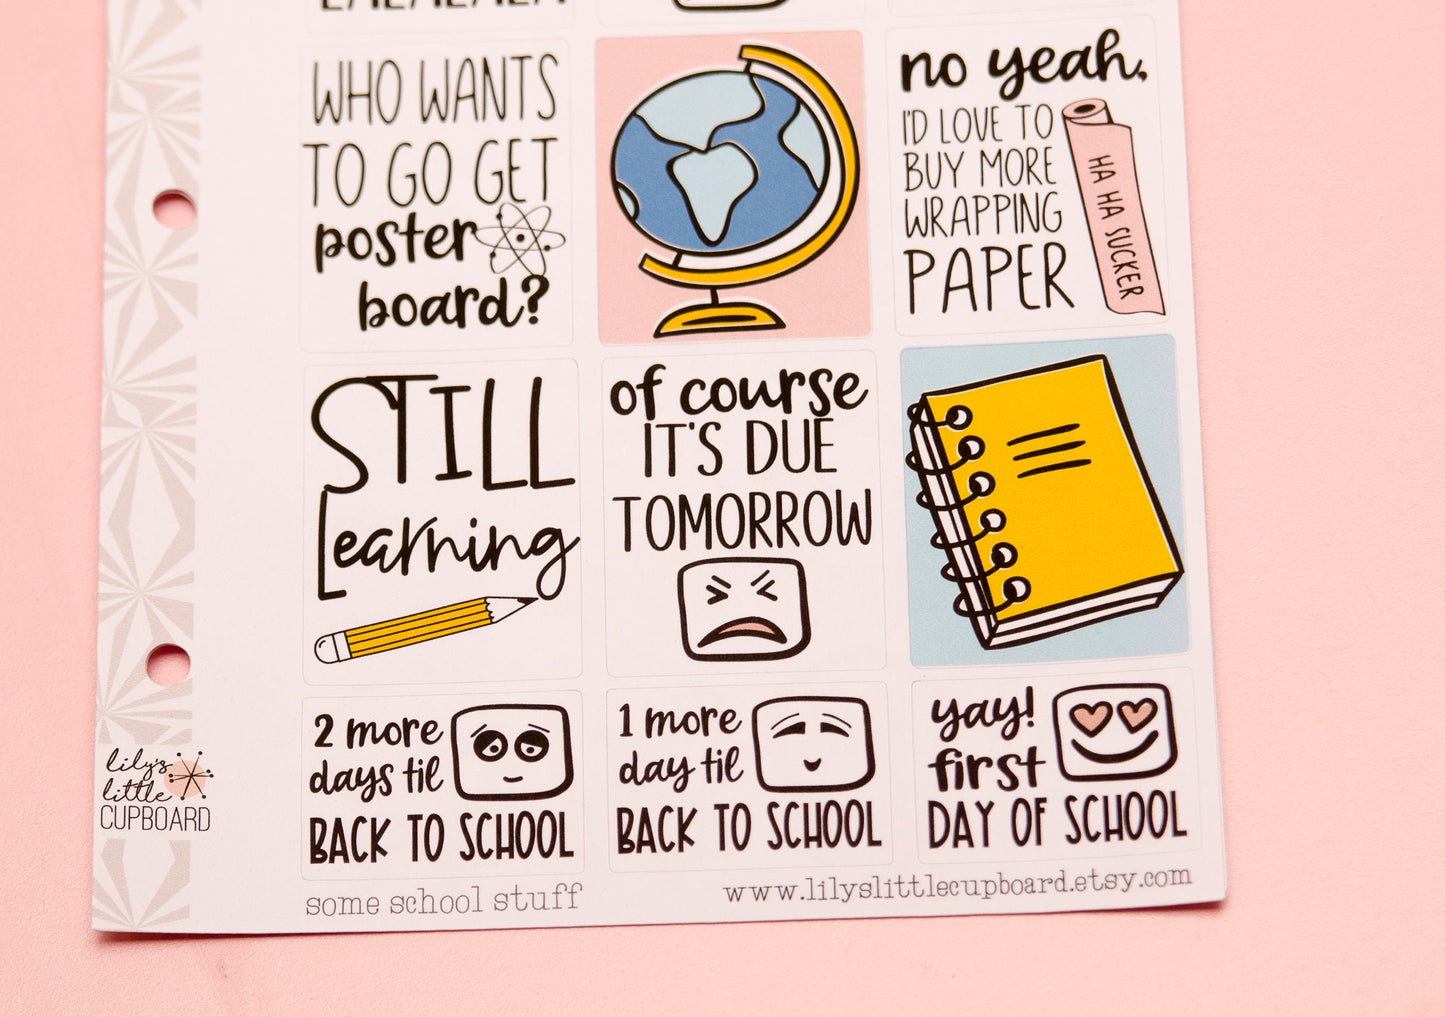 WHO WANTS
TO GO GET
poster
board?
no yeah,
I'D LOVE TO
BUY MORE
WRAPPING
PAPER
HA HA SUCKER
STILL
Learning
of course
IT'S DUE
TOMORROW
2 more
days til
BACK TO SCHOOL
1 more
day til
BACK TO SCHOOL
yay!
first
DAY OF SCHOOL
lily's
little
CUPBOARD
some school stuff
www.lilyslittlecupboard.etsy.com